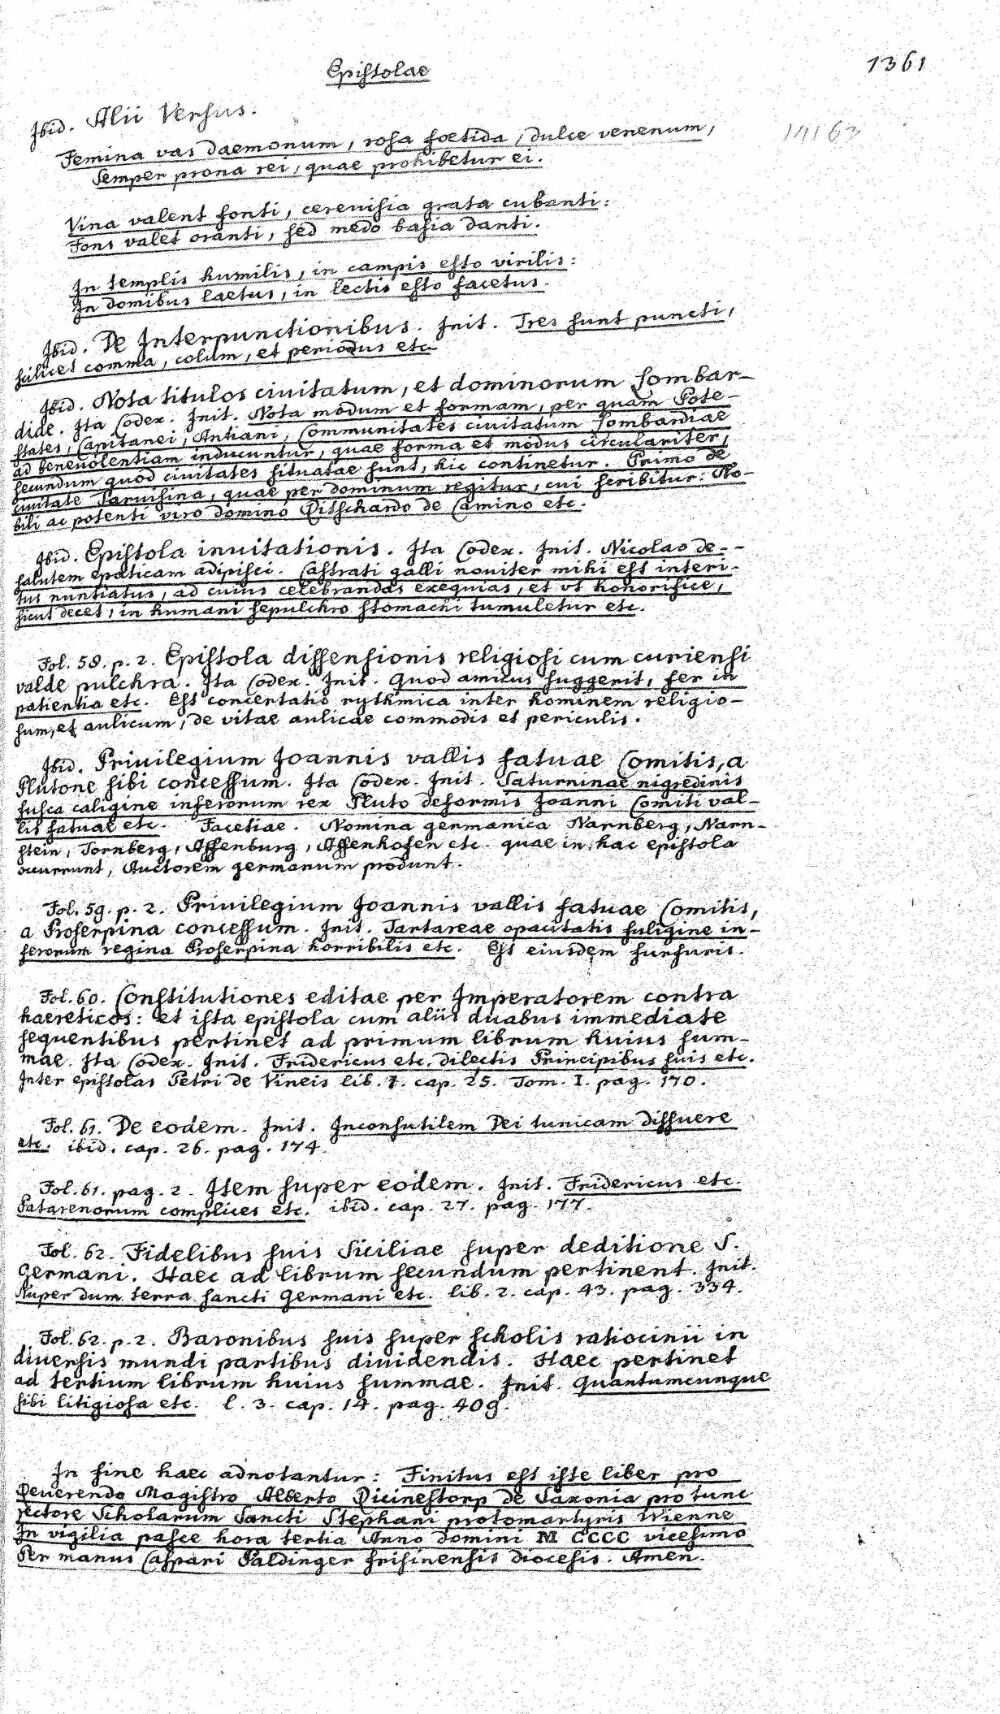 Epistolae
1361
Ibid. Alii Versus.
Femina vas daemonum, rosa foetida, dulce venenum,
Semper prona rei, quae prohibetur ei.
Vina valent fonti, cerevisia grata cubanti:
Fons valet oranti, sed medo basia danti.
In templis humilis, in campis esto virilis:
In domibus laetus, in lectis esto facetus.
Ibid. De Interpunctionibus. Init. Tres sunt puncti,
scilicet comma, colum, et periodus etc.
Ibid. Nota titulos civitatum, et dominorum Lombar-
dide. Ita Codex. Init. Nota modum et formam, per quam Pote-
states, Capitanei, Antiani, Communitates civitatum Lombardiae
ad benevolentiam inducuntur, quae forma et modus circulariter,
secundum quod civitates situatae sunt, hic continetur. Primo de
civitate Tarvisina, quae per dominum regitur, cui scribitur: No-
bili ac potenti viro domino Ritschardo de Camino etc.
Ibid. Epistola invitationis. Ita Codex. Init. Nicolao de-
salutem epaticam adipisci. Castrati galli noviter mihi est interi-
tus nuntiatus, ad cuius celebrandas exequias, et ut honorifice,
sicut decet, in humani sepulchro stomachi tumuletur etc.
Fol. 58. p. 2. Epistola dissensionis religiosi cum curiensi
valde pulchra. Ita Codex. Init. Quod amicus suggerit, fer in
patientia etc. Est concertatio rythmica inter hominem religio-
sum, et aulicum, de vitae aulicae commodis et periculis.
Ibid. Privilegium Joannis vallis fatuae Comitis, a
Plutone sibi concessum. Ita Codex. Init. Saturninae nigredinis
fusca caligine inferorum rex Pluto deformis Joanni Comiti val-
lis fatuae etc. Facetiae. Nomina germanica Narnberg, Narn-
stein, Tornberg, Affenburg, Affenhofen etc. quae in hac epistola
occurrunt, Auctorem germanum produnt.
Fol. 59. p. 2. Privilegium Joannis vallis fatuae Comitis,
a Proserpina concessum. Init. Tartareae opacitatis fuligine in-
ferorum regina Proserpina horribilis etc. Est eiusdem furfuris.
Fol. 60. Constitutiones editae per Imperatorem contra
haereticos: et ista epistola cum aliis duabus immediate
sequentibus pertinet ad primum librum huius sum-
mae. Ita Codex. Init. Fridericus etc. dilectis Principibus suis etc.
Inter epistolas Petri de Vineis lib. 1. cap. 25. Tom. I. pag. 170.
Fol. 61. De eodem. Init. Inconsutilem Dei tunicam dissuere
etc. ibid. cap. 26. pag. 174.
Fol. 61. pag. 2. Item super eodem. Init. Fridericus etc.
Patarenorum complices etc. ibid. cap. 27. pag. 177.
Fol. 62. Fidelibus suis Siciliae super deditione S.
Germani. Haec ad librum secundum pertinent. Init.
Nuper dum terra sancti Germani etc. lib. 2. cap. 43. pag. 334.
Fol. 62. p. 2. Baronibus suis super scholis ratiocinii in
diversis mundi partibus dividendis. Haec pertinet
ad tertium librum huius summae. Init. Quantumcunque
sibi litigiosa etc. l. 3. cap. 14. pag. 409.
In fine haec adnotantur: Finitus est iste liber pro
Reverendo Magistro Alberto Ricinestorp de Saxonia pro tunc
rectore Scholarum Sancti Stephani protomartyris Wienne
In vigilia pasce hora tertia Anno domini M CCCC vicesimo
Per manus Caspari Paldinger frisinensis diocesis. Amen.